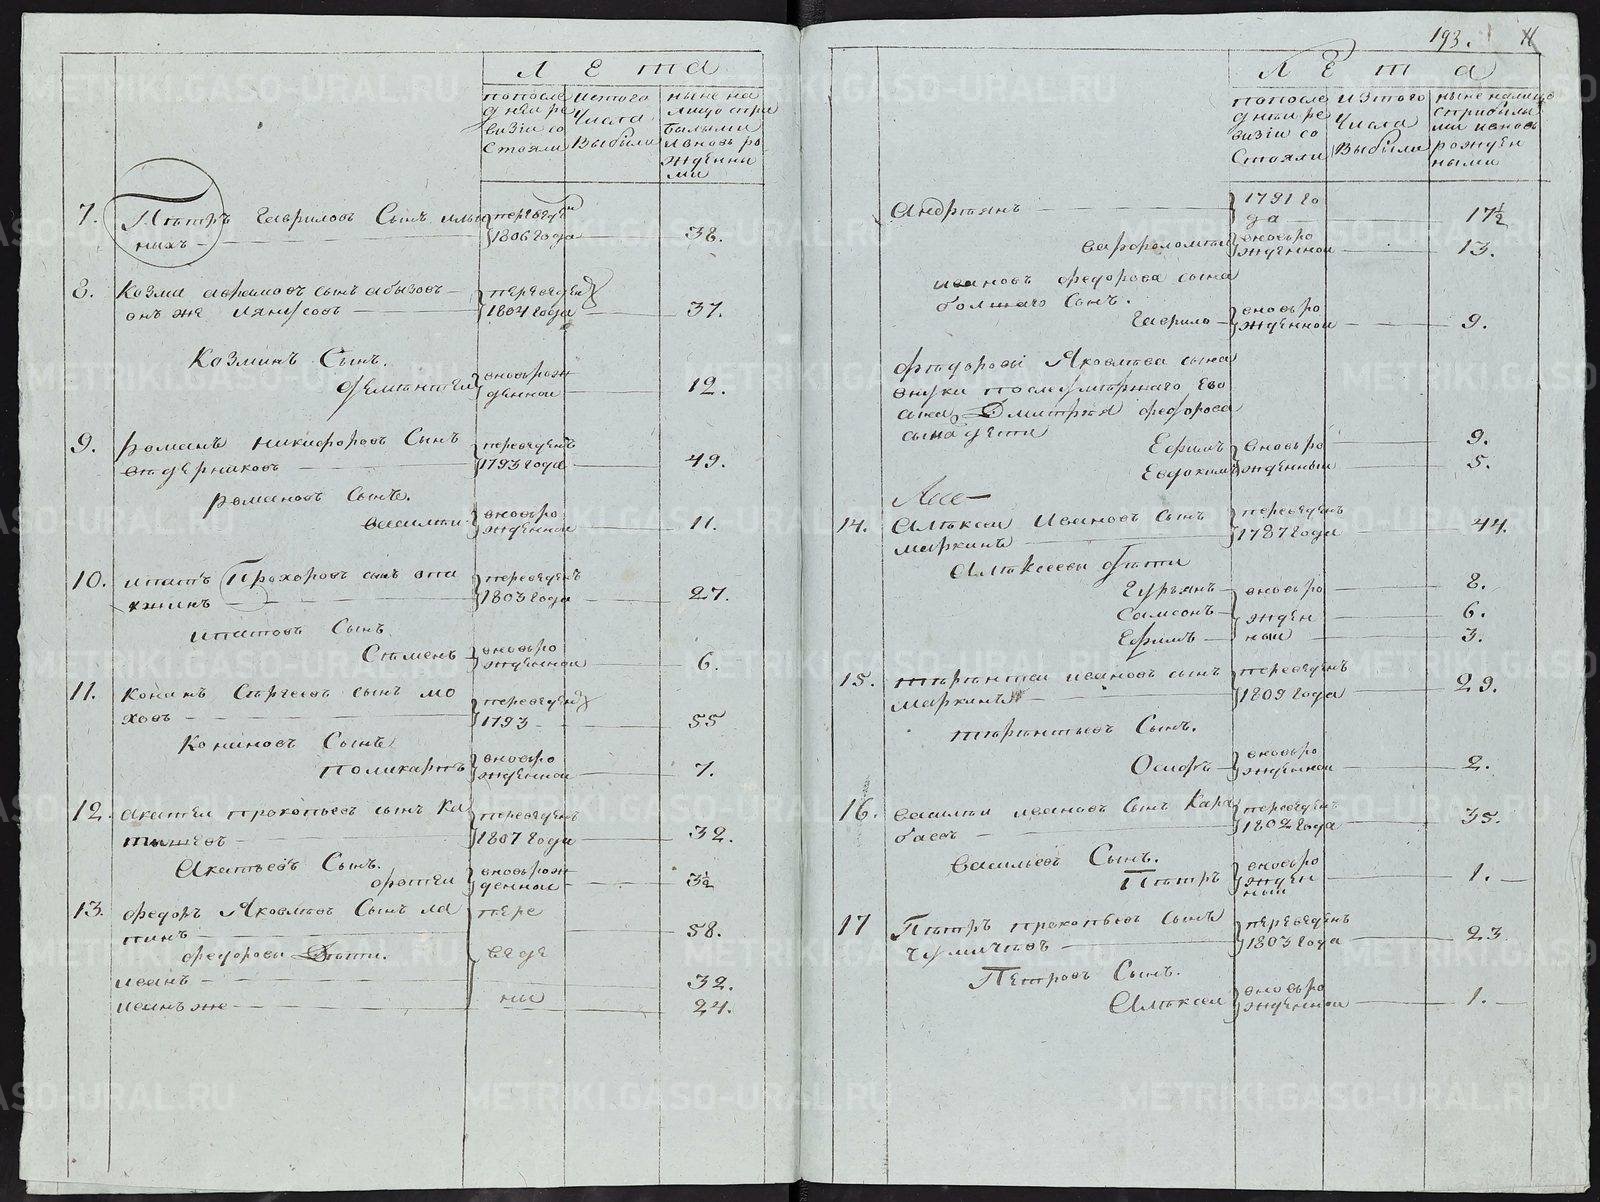 Лета
попосле
дней ре
визіи со
стояли
изтого
числа
выбыли
ныне на
лицо спри
былыми
ивновь ро
жденны
ми
7. Пѣтръ Гавриловъ Сынъ
ныхъ
1806 года 38.
8. Козма аврамовъ сынъ абызовъ
онъ же
переведен
1804 года 37.
Козминъ Сынъ.
вновьрож
денной 12.
9. Романъ Никифоровъ Сынъ
переведенъ
1793 года 49.
Романовъ Сынъ.
василѣи
вновьро
жденной 11.
10. ипатъ Прохоровъ сынъ
переведенъ
1803 года 27.
ипатовъ Сынъ
Сѣменъ
вновьро
жденной 6.
11. Кононъ Сѣргеевъ сынъ мо
ховъ
переведен
1793 55
Кононовъ Сынъ
поликарпъ
вновьро
жденной 7.
12. акатей прокопьевъ сынъ Ка
переведенъ
1807 года 32.
Акатьевъ Сынъ.
вновьрож
денной 3½
13. федоръ Яковлѣвъ Сынъ ла
пинъ 58.
пере
веде
ны
федоровы Дѣти.
иванъ 32.
иванъ же 24.
193.
Лета
попосле
дней ре
визіи со
стояли
изтого
числа
выбыли
ныне налицо
сприбылы
ми ивновь
рожден
ными
Андрѣянъ
1791 го
да 17½
варфоломѣй
вновьро
жденной 13.
ивановъ федорова сына
болшаго Сынъ.
Гаврило
вновьро
жденной 9.
фѣдоровы Яковлѣва сына
внуки после умѣршаго Его
сына Дмитрѣя федорова
сына дети
Ефимъ 9.
Евдокимъ 5.
вновьро
жденныи
14. Алѣксеи Ивановъ сынъ
маркинъ
переведенъ
1787 года 44.
Алѣксеевы дѣти
Гурьянъ 8.
Самсонъ 6.
Ефимъ 3.
вновьро
жден
ныи
15. тѣрѣнтеи ивановъ сынъ
маркинъ
переведенъ
1809 года 29.
тѣрѣнтьевъ Сынъ.
Осипъ
вновьро
жденной 2.
16. василѣи ивановъ Сынъ Кара
баевъ
переведенъ
1802 года 35.
васильевъ Сынъ.
Пѣтръ
вновьро
жден
ный 1.
17 Пѣтръ прокопьевъ сынъ
переведенъ
1803 года 23
Петровъ Сынъ.
Алѣксеи
вновьро
жденной 1.
METRIKI.GASO-URAL.RU